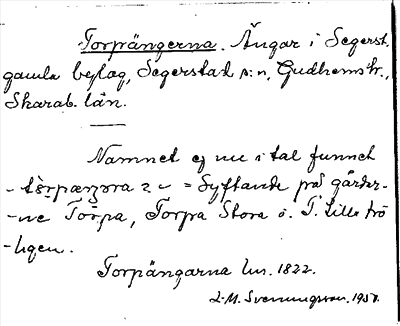 Torpängerna. Ängar i Segerst.
gamla beflag, Segerstad s:n, Gudhems hr.,
Skarab. län.
Namnet ej nu i tal funnet
- Syftande på gårdar-
-ne Torpa, Torpa Stora o. T. Lilla trö
-ligen.
Torpängarna lm. 1822.
L-M. Svenungsson. 1957.